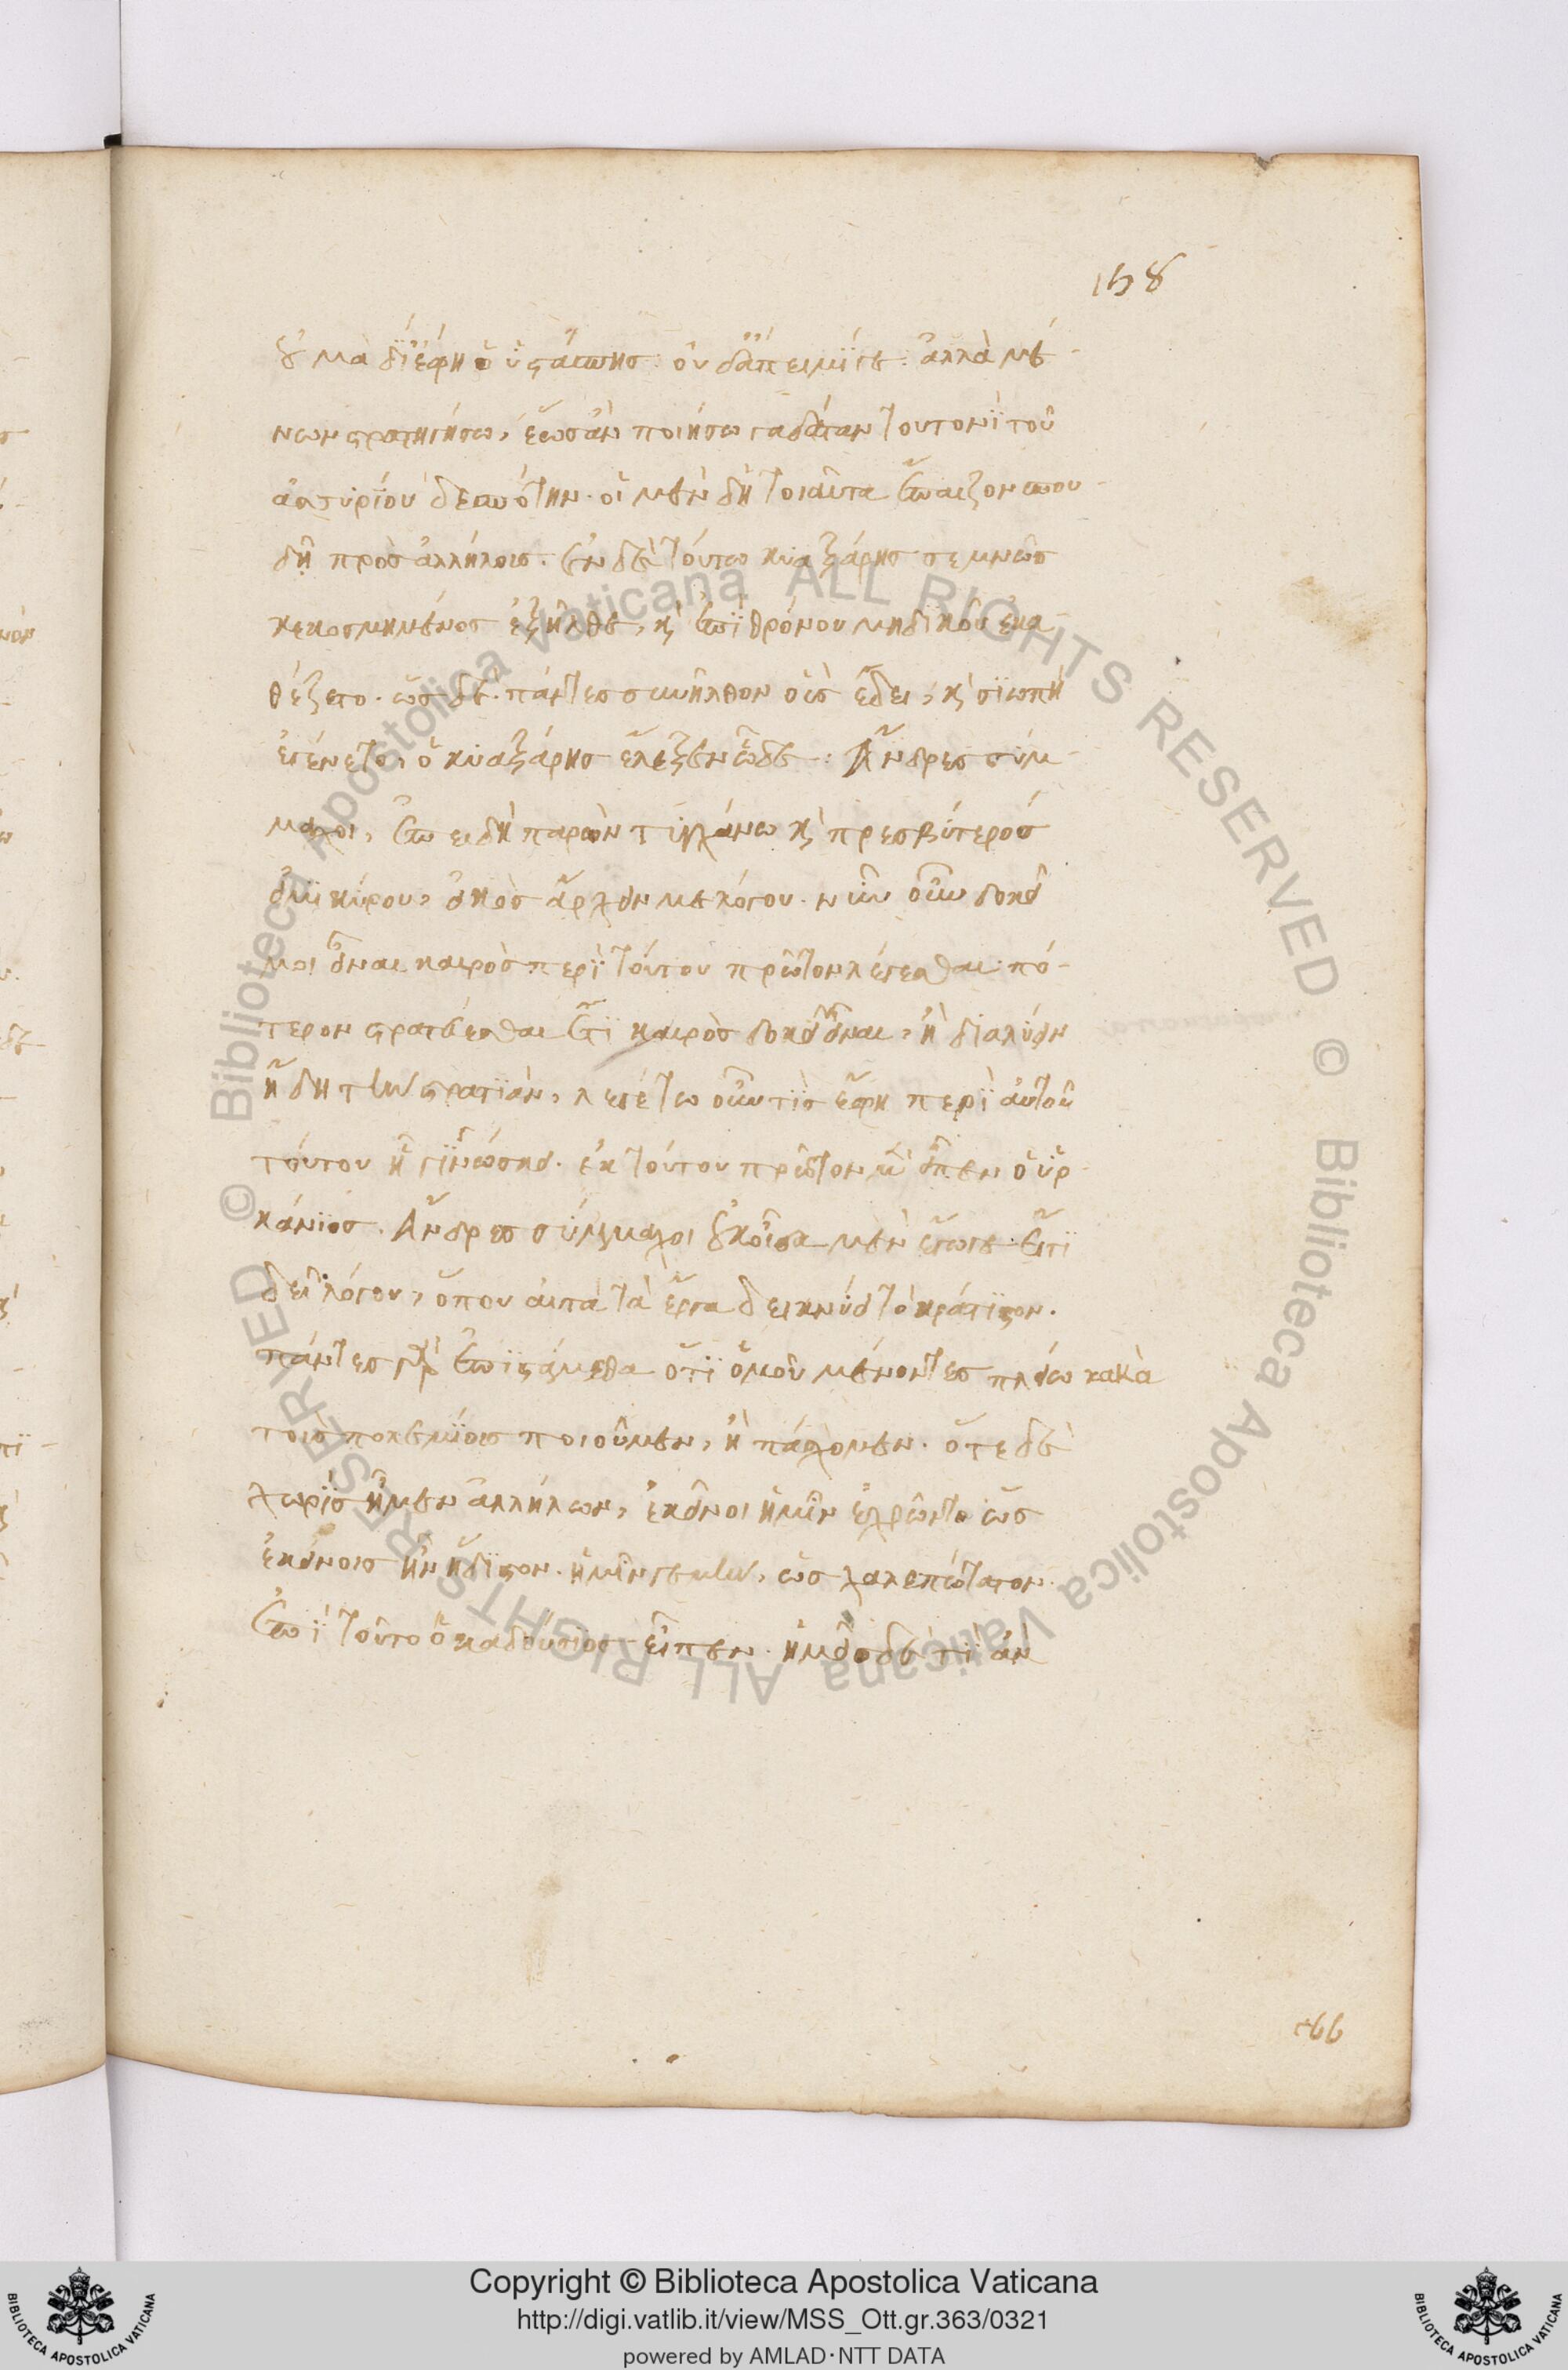 158
εἰ μὰ δί' ἔφη ὁ ὑστάσπης· οὐδ' ἄπειμί γε· ἀλλὰ μέ-
νων στρατηγήσω, ἕως ἂν ποιήσω γαδάταν τουτονὶ τοῦ
ἀσσυρίου δεσπότην. οἱ μὲν δὴ τοιαῦτα ἔπαιζον σπου-
δῇ πρὸς ἀλλήλοις. ἐν δὲ τούτω κυαξάρης σεμνῶς
κεκοσμημένος ἐξῆλθε, κ(αὶ) ἐπὶ θρόνου μηδικοῦ ἐκα-
θέζετο. ὡς δὲ πάντες συνῆλθον οὓς ἔδει, κ(αὶ) σιωπὴ
ἐγένετο, ὁ κυαξάρης ἔλεξεν ὧδε: Ἄνδρες σύμ-
μαχοι, ἐπειδὴ παρὼν τυγχάνω κ(αὶ) πρεσβύτερός
εἰμι κύρου, εἰκὸς ἄρχειν με λόγου. νῦν οὖν δοκεῖ
μοι εἶναι καιρὸς περὶ τούτου πρῶτον λέγεσθαι πό-
τερον στρατεύεσθαι ἔτι καιρὸς δοκεῖ εἶναι, ἢ διαλύειν
ἤδη τὴν στρατιάν, λεγέτω οὖν τὶς ἔφη περὶ αὐτοῦ
τούτου ᾗ γινώσκει. ἐκ τούτου πρῶτον μ(ὲν) εἶπεν ὁ ὑρ-
κάνιος. Ἄνδρες σύμμαχοι οὐκ οἶδα μὲν ἔγωγε ἔτι
δεῖ λόγου, ὅπου αὐτὰ τὰ ἔργα δεικνύει τὸ κράτιστον.
πάντες γὰρ ἐπιστάμεθα ὅτι ὁμοῦ μένοντες πλείω κακὰ
τοὺς πολεμίους ποιοῦμεν, ἢ πάσχομεν. ὅτε δὲ
χωρὶς ἦμεν ἀλλήλων, ἐκεῖνοι ἡμῖν ἐχρῶντο ὡς
ἐκείνοις ἦν ἥδιστον. ἡμῖν γε μὴν, ὡς χαλεπώτατον.
ἐπὶ τούτο ὁ καδούσιος εἶπεν. ἡμεῖς δὲ τί ἂν
166
Copyright © Biblioteca Apostolica Vaticana
http://digi.vatlib.it/view/MSS_Ott.gr.363/0321
powered by AMLAD·NTT DATA